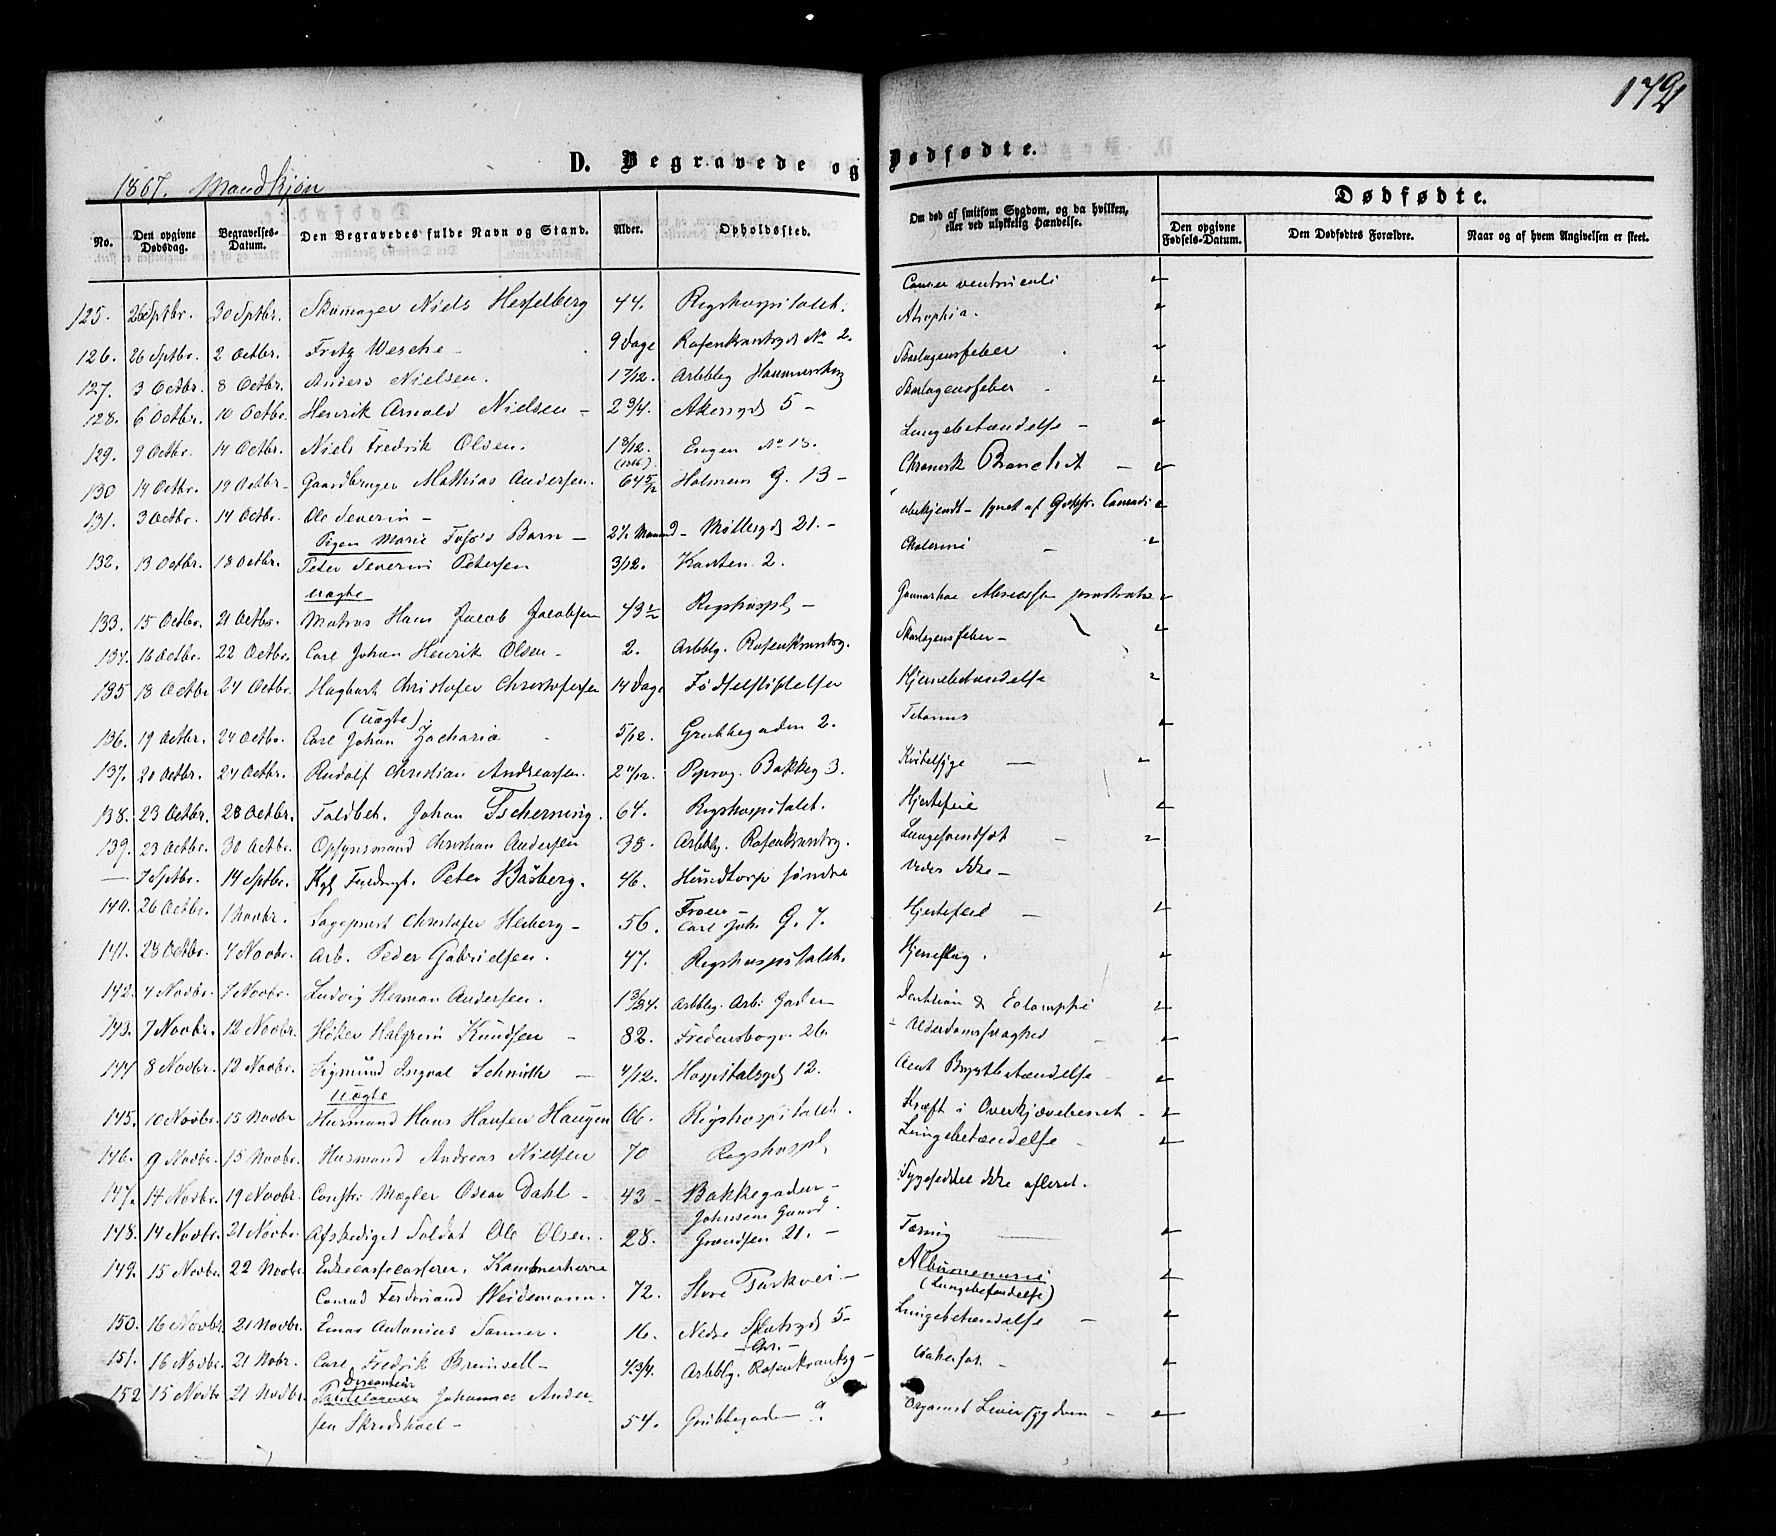 172
D. Begravede og Dødfødte.
1867. Mandkjøn
No. Den opgivne Dødsdag. Begravelses-Datum. Den Begravedes fulde Navn og Stand. Alder. Opholdssted. Om død af smitsom Sygdom, og da hvilken, eller ved ulykkelig Hændelse. Dødfødte.
Den opgivne Fødsels-Datum. Den Dødfødtes Forældre. Naar og af hvem Angivelsen er skeet.
125. 26 Sptbr. 30 Sptbr. Skomager Niels Hesselberg 44. Rigshospitalet. Cancer ventriculi
126. 26 Sptbr. 2 Octbr. Fritz Wesche 9 Dage Rosenkrantzgd No 2. Atrophia.
127. 3 Octbr. 8 Octbr. Anders Nielsen. 1 7/12. Arbblg Hammersborg Skarlagensfeber
128. 6 Octbr. 10 Octbr. Henrik Arnold Nielsen - 2 3/4. Akersgd 5 - Skarlagensfeber
129. 9 Octbr. 14 Octbr. Niels Fredrik Olsen. 1 8/12. Engen No 13. Lungebetændelse -
130 14 Octbr. 19 Octbr. Gaardbruger Mathias Andersen. 64 5/12 Holmen G. 13 - Chronisk Bronchit -
131. 3 Octbr. 14 Octbr. Ole Severin -
Pigen Marie Foss's Barn - 2 1/2 Maaned - Møllergd 21. - ubekjendt - synet af
132. 13 Octbr. 18 Octbr. Peter Severin Petersen 3/12. Kanten 2. Cholerine
uægte
133. 15 Octbr. 21 Octbr. Matros Hans Jacob Jacobsen 43 1/2 Rigshospl -
134. 16 Octbr. 22 Octbr. Carl Johan Henrik Olsen - 2. Arbblg. Rosenkrantzg. Skarlagensfeber -
135 18 Octbr 24 Octbr. Hagbart Christofer Christofersen 14 Dage Fødselstiftelsen Hjernebetændelse
(uægte).
136. 19 Octbr. 24 Octbr. Carl Johan Zacharia 5/12. Grubbegaden 2. Tetanus
137. 20 Octbr. 24 Octbr. Rudolf Christian Andreassen. 2 11/12. Pipervg. Bakkeg 3.
138. 23 Octbr. 28 Octbr. Toldbet. Johan Tscherning. 64. Rigshospitalet. Hjertefeil
139. 23 Octbr. 30 Octbr. Opsynsmand Christian Andersen 38. Arbblg. Rosenkrantzg. Lungesvindsot
— 7 Sptbr. 14 Sptbr. Kgl Fuldmgt. Peter Blåsberg. 46. Hundtorp søndre Vides ikke -
Froen -
140. 26 Octbr. 1 Novbr. Sogneprest Christofer Heiberg - 56. Carl Joh. G. 7. Hjertefeil
141. 28 Octbr. 4 Novbr. Arb. Peder Gabrielsen. 47. Rigshospitalet. Hjerneslag.
142. 4 Novbr. 7 Novbr. Ludvig Herman Andersen. Arbblg. Arb. Gaden Dentition & Eclampsi
143. 7 Novbr. 12 Novbr. Høker Halgrim Knudsen - 82. Fredensborgv. 26. Alderdomssvaghed
144 8 Novbr. 12 Novbr. Sigmund Ingval Schmith - 4/12. Hospitalsgd 12. Acut Brystbetændelse
uægte
145. 10 Novbr. 15 Novbr Husmand Hans Hansen Haugen 66. Rigshospitalet. Kræft i Overkjævebenet -
146. 9 Novbr. 15 Novbr. Husmand Andreas Nielsen 70 Rigshospl. Lungebetændelse
147. 14 Novbr. 19 Novbr. Mægler Oscar Dahl - 43 - Bakkegaden - Sygeseddel ikke afleveret.
Johnsens Gaard.
148. 14 Novbr. 21 Novbr. Afskediget Soldat Ole Olsen. 28. Grændsen 21. - Tæring
149. 15 Novbr. 22 Novbr. Kammerherre
Conrad Ferdinand Weidemann. 72. Store Parkvei - Albumenurie
(Lungebetændelse)
150. 16 Novbr 21 Novbr. Enar Antonius Sanner. 16. Nedre Slotsgd 5 - Lungebetændelse
Chr. -
151. 16 Novbr. 21 Nobr. Carl Fredrik Bremsell - 4 3/4. Arbblg. Rosenkrantzg -
152 15 Novbr 21 Novbr. Johannes Ander-
sen Skredshoel - 54. Grubbegaden 9. Organisk Leversygdom -